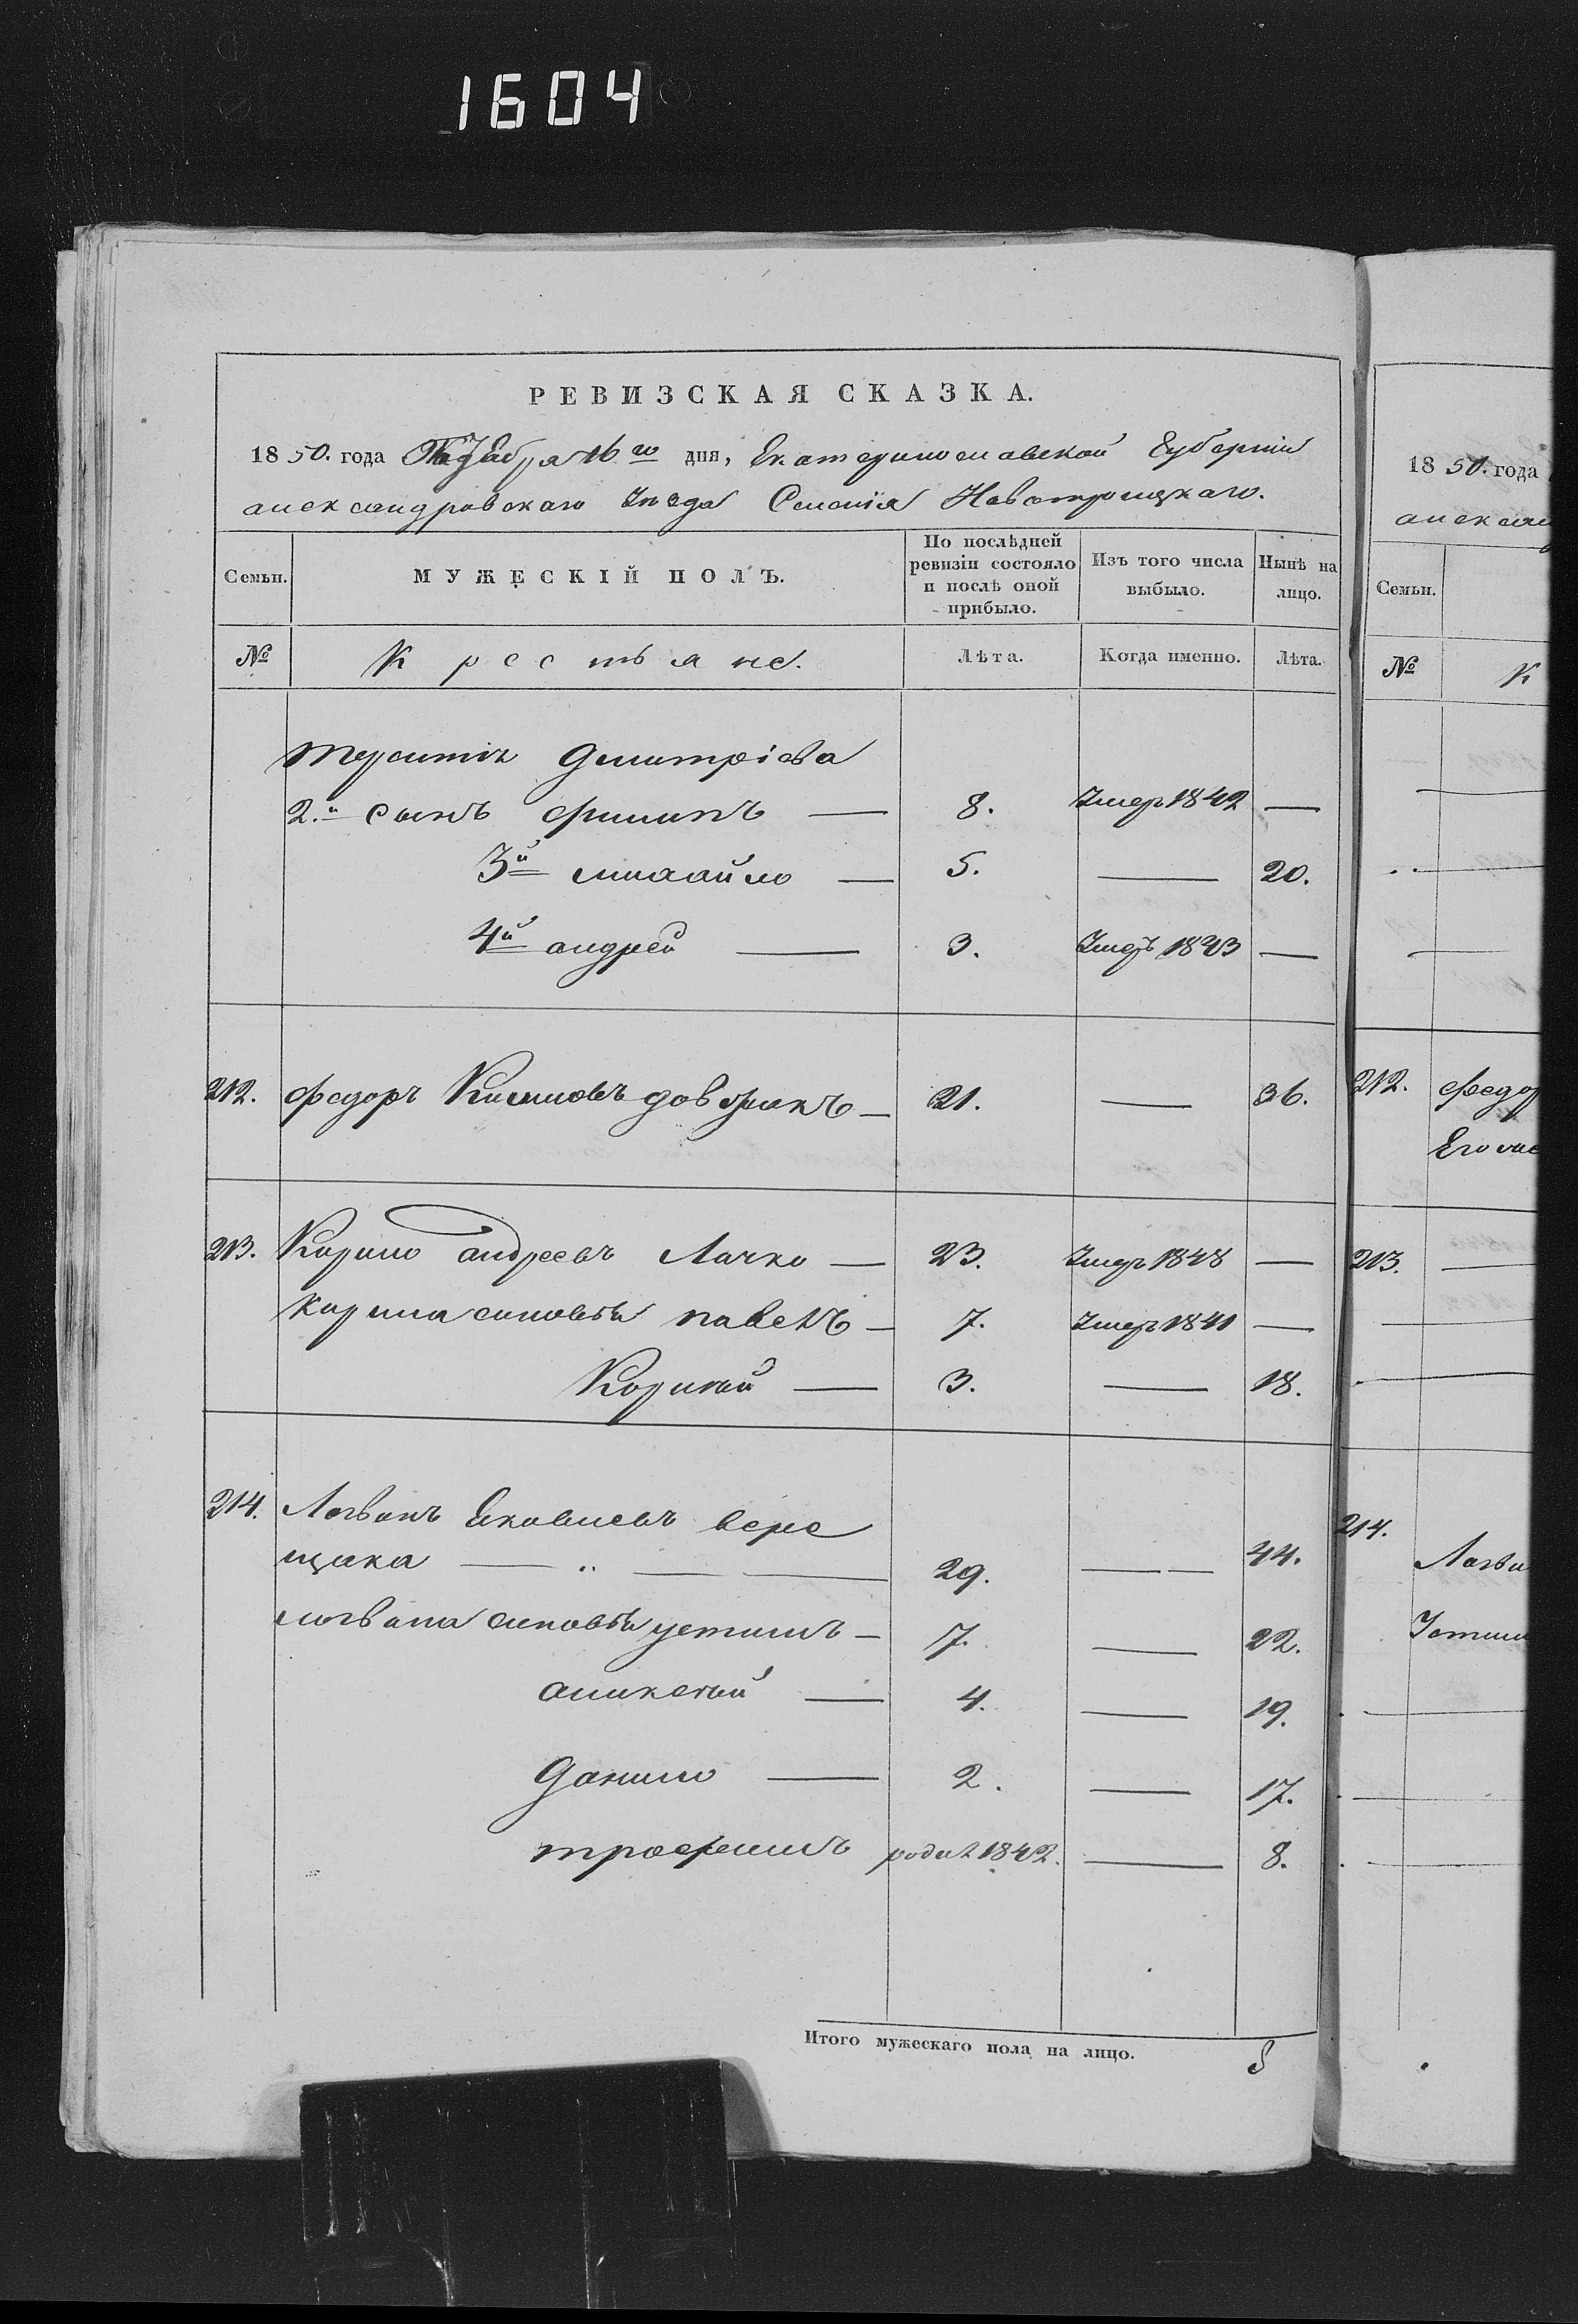 1604
РЕВИЗСКАЯ СКАЗКА.
1850. года 16го дня, Екатеринославской Губернiи
александровскаго Уезда Селенiя Новотроицкаго.
Семьи. МУЖЕСКIЙ ПОЛЪ. По послѣдней ревизiи состояло и послѣ оной прибыло. Изъ того числа выбыло. Нынѣ на лицо.
№ Крестьяне. Лѣта. Когда именно. Лѣта.
Дмитрiева
2.й сынъ филипъ — 8. Умеръ 1842 —
3й михайло — 5. — 20.
4й андрей — 3. Умеръ 1843 —
212. федоръ довбникъ — 21. — 36.
213. Кирило андреевъ Лачко — 23. Умеръ 1848 —
Кирила синовья павелъ — 7. Умеръ 1841 —
Корней — 3. — 18.
214. Логвинъ Яковлевъ вере
щака — 29. — 44.
логвина синовья устимъ — 7. — 22.
аликсей — 4. — 19.
Данило — 2. — 17.
трофимъ родил 1842. — 8.
Итого мужескаго пола на лицо. 8
1850. года
Семьи.
№ К
212. федор
Его
213.
214.
Логви
Устим